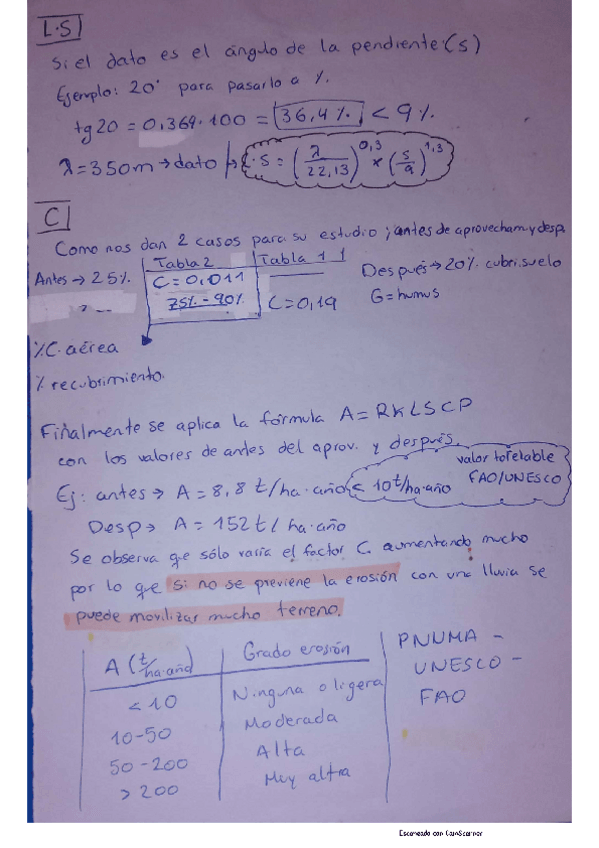 L·S
Si el dato es el ángulo de la pendiente (s)
Ejemplo: 20° para pasarlo a %.
tg20 = 0,369·100 = 36,4% < 9%
λ = 350m → dato L·S = (λ/22,13)^0,3 × (s/9)^1,3
C
Como nos dan 2 casos para su estudio; antes de aprovecham y desp.
Tabla 2 Tabla 11
Antes → 25% C=0,011 Después → 20% cubri. suelo
75%-90% C=0,19 G=humus
%C. aérea
% recubrimiento.
Finalmente se aplica la fórmula A=RKLSCP
con los valores de antes del aprov. y después.
valor tolelable
Ej: antes → A=8,8 t/ha·año < 10t/ha·año FAO/UNESCO
Desp → A=152t/ha·año
Se observa que sólo varía el factor C. aumentando mucho
por lo que si no se previene la erosión con una lluvia se
puede movilizar mucho terreno.
A (t/ha·año) Grado erosión PNUMA -
UNESCO -
FAO
<10 Ninguna o ligera
10-50 Moderada
50-200 Alta
>200 Muy altra
Escaneado con CamScanner